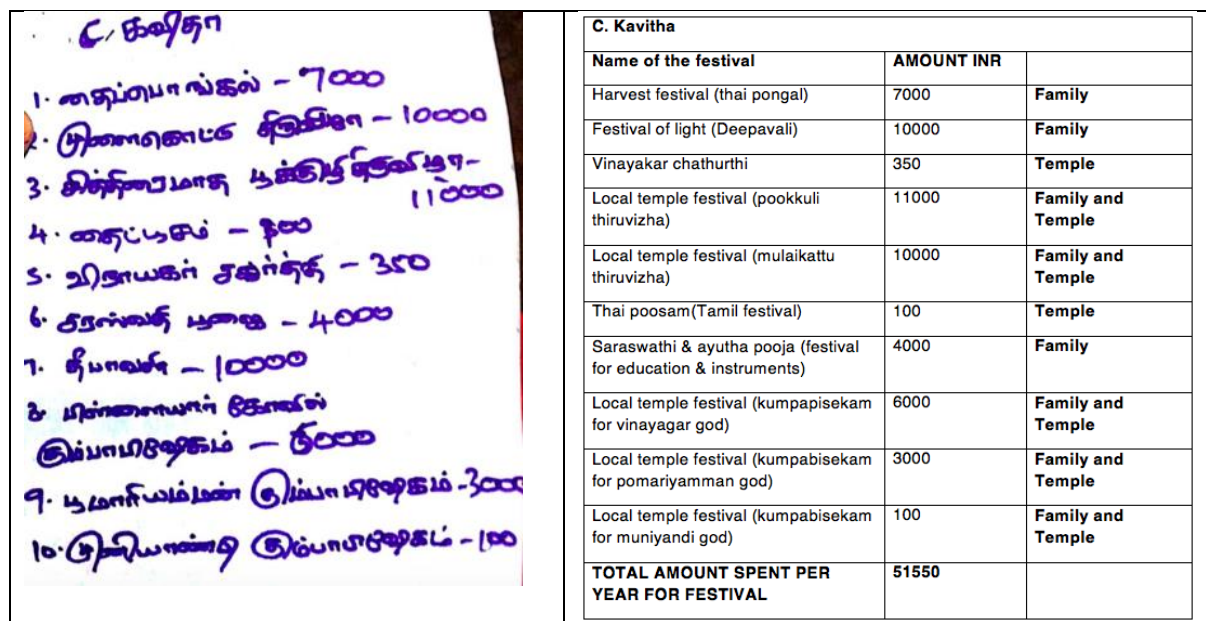 C. கவிதா
1. தைப்பொங்கல் - 7000
2. முளைகொட்டு திருவிழா - 10000
3. சித்திரைமாத பூக்குழி திருவிழா -
11000
4. தைப்பூசம் - 100
5. விநாயகர் சதுர்த்தி - 350
6. சரஸ்வதி பூஜை - 4000
7. தீபாவளி - 10000
8 பிள்ளையார் கோவில்
கும்பாபிஷேகம் - 6000
9. பூமாரியம்மன் கும்பாபிஷேகம் - 3000
10. முனியாண்டி கும்பாபிஷேகம் - 100
C. Kavitha
Name of the festival AMOUNT INR
Harvest festival (thai pongal) 7000 Family
Festival of light (Deepavali) 10000 Family
Vinayakar chathurthi 350 Temple
Local temple festival (pookkuli 11000 Family and
thiruvizha) Temple
Local temple festival (mulaikattu 10000 Family and
thiruvizha) Temple
Thai poosam(Tamil festival) 100 Temple
Saraswathi & ayutha pooja (festival 4000 Family
for education & instruments)
Local temple festival (kumpapisekam 6000 Family and
for vinayagar god) Temple
Local temple festival (kumpabisekam 3000 Family and
for pomariyamman god) Temple
Local temple festival (kumpabisekam 100 Family and
for muniyandi god) Temple
TOTAL AMOUNT SPENT PER 51550
YEAR FOR FESTIVAL